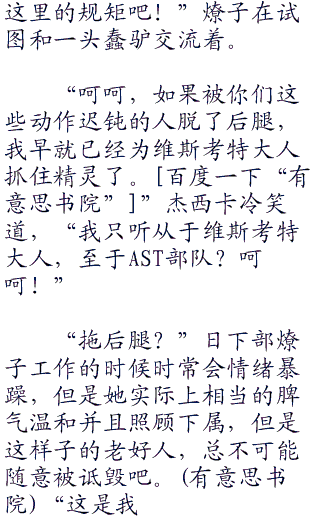 这里的规矩吧！”燎子在试
图和一头蠢驴交流着。
“呵呵，如果被你们这
些动作迟钝的人脱了后腿，
我早就已经为维斯考特大人
抓住精灵了。[百度一下“有
意思书院”]”杰西卡冷笑
道，“我只听从于维斯考特
大人，至于AST部队？呵
呵！”
“拖后腿？”日下部燎
子工作的时候时常会情绪暴
躁，但是她实际上相当的脾
气温和并且照顾下属，但是
这样子的老好人，总不可能
随意被诋毁吧。(有意思书
院)“这是我